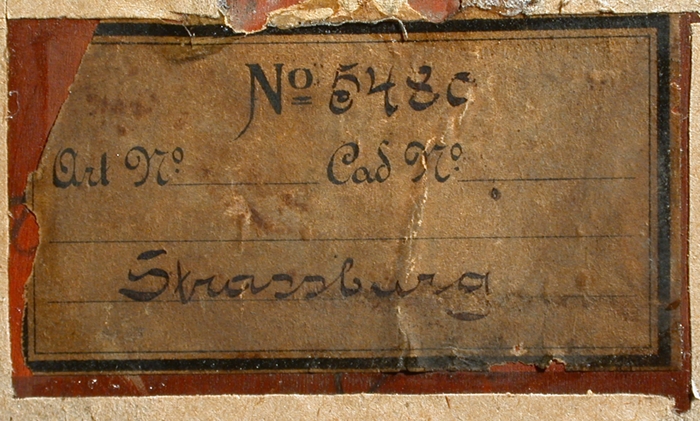 No 548c
Art No Cad No
Strassburg